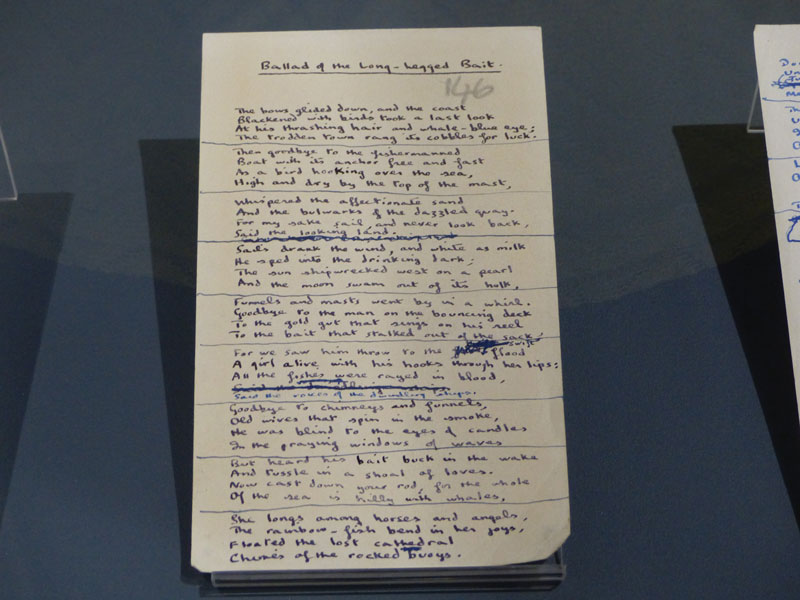 Ballad of the Long-Legged Bait.
146
The bows glided down, and the coast
Blackened with birds took a last look
At his thrashing hair and whale-blue eye;
The trodden town rang its cobbles for luck.
Then goodbye to the fishermanned
Boat with its anchor free and fast
As a bird hooking over the sea,
High and dry by the top of the mast,
Whispered the affectionate sand
And the bulwarks of the dazzled quay.
For my sake sail, and never look back,
Said the looking land.
Sails drank the wind, and white as milk
He sped into the drinking dark;
The sun shipwrecked west on a pearl
And the moon swam out of its hulk,
Funnels and masts went by in a whirl.
Goodbye to the man on the bouncing deck
To the gold gut that sings on his reel
To the bait that stalked out of the sack,
For we saw him throw to the swift flood
A girl alive with his hooks through her lips;
All the fishes were rayed in blood,
Said the
Said the voices of the dwindling ships.
Goodbye to chimneys and funnels,
Old wives that spin in the smoke,
He was blind to the eyes of candles
In the praying windows of waves
But heard his bait buck in the wake
And tussle in a shoal of loves.
Now cast down your rod, for the whole
Of the sea is hilly with whales,
She longs among horses and angels,
The rainbow-fish bend in her joys,
Floated the lost cathedral
Chimes of the rocked buoys.